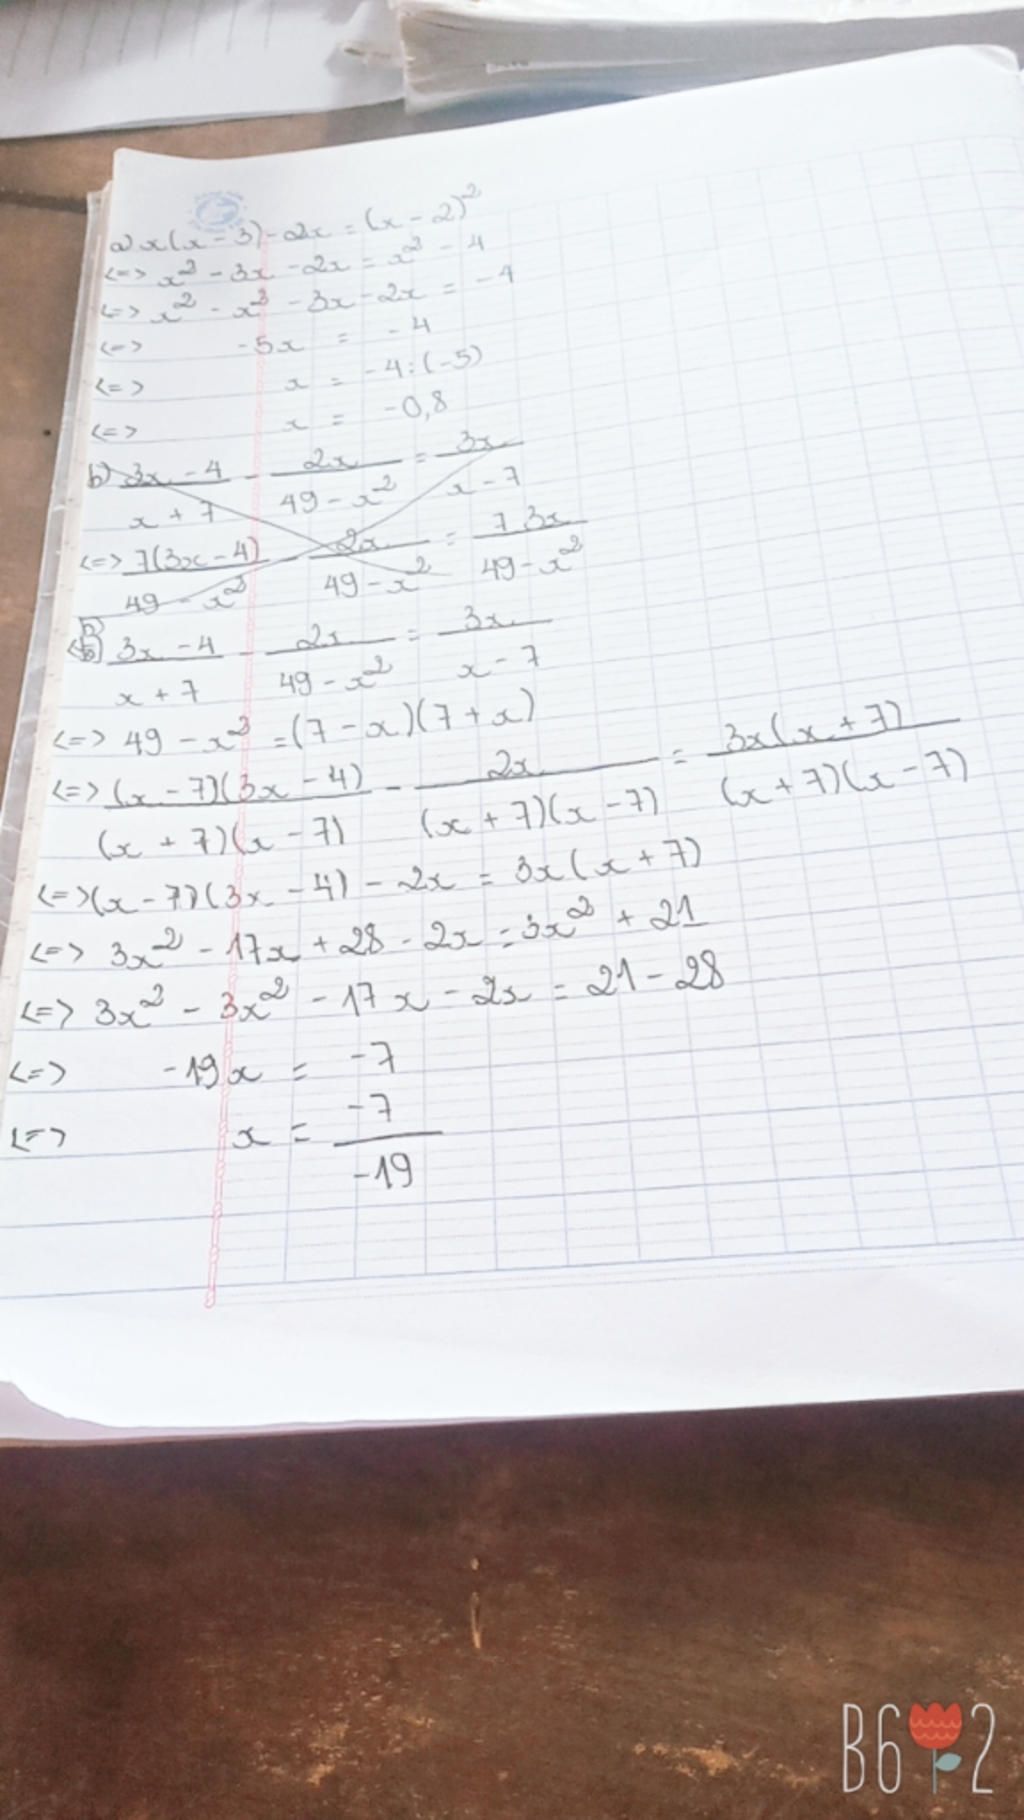 a) x(x - 3) - 2x = (x - 2)²
<=> x² - 3x - 2x = x² - 4
<=> x² - x² - 3x - 2x = - 4
<=> -5x = - 4
<=> x = - 4 : (-5)
<=> x = -0,8
b) (3x - 4)/(x + 7) - 2x/(49 - x²) = 3x/(x - 7)
<=> 7(3x - 4)/(49 - x²) - 2x/(49 - x²) = 7 3x/(49 - x²)
b) (3x - 4)/(x + 7) - 2x/(49 - x²) = 3x/(x - 7)
<=> 49 - x² = (7 - x)(7 + x)
<=> (x - 7)(3x - 4)/(x + 7)(x - 7) - 2x/(x + 7)(x - 7) = 3x(x + 7)/(x + 7)(x - 7)
<=> (x - 7)(3x - 4) - 2x = 3x(x + 7)
<=> 3x² - 17x + 28 - 2x = 3x² + 21
<=> 3x² - 3x² - 17x - 2x = 21 - 28
<=> -19x = -7
<=> x = -7/-19
B6 2